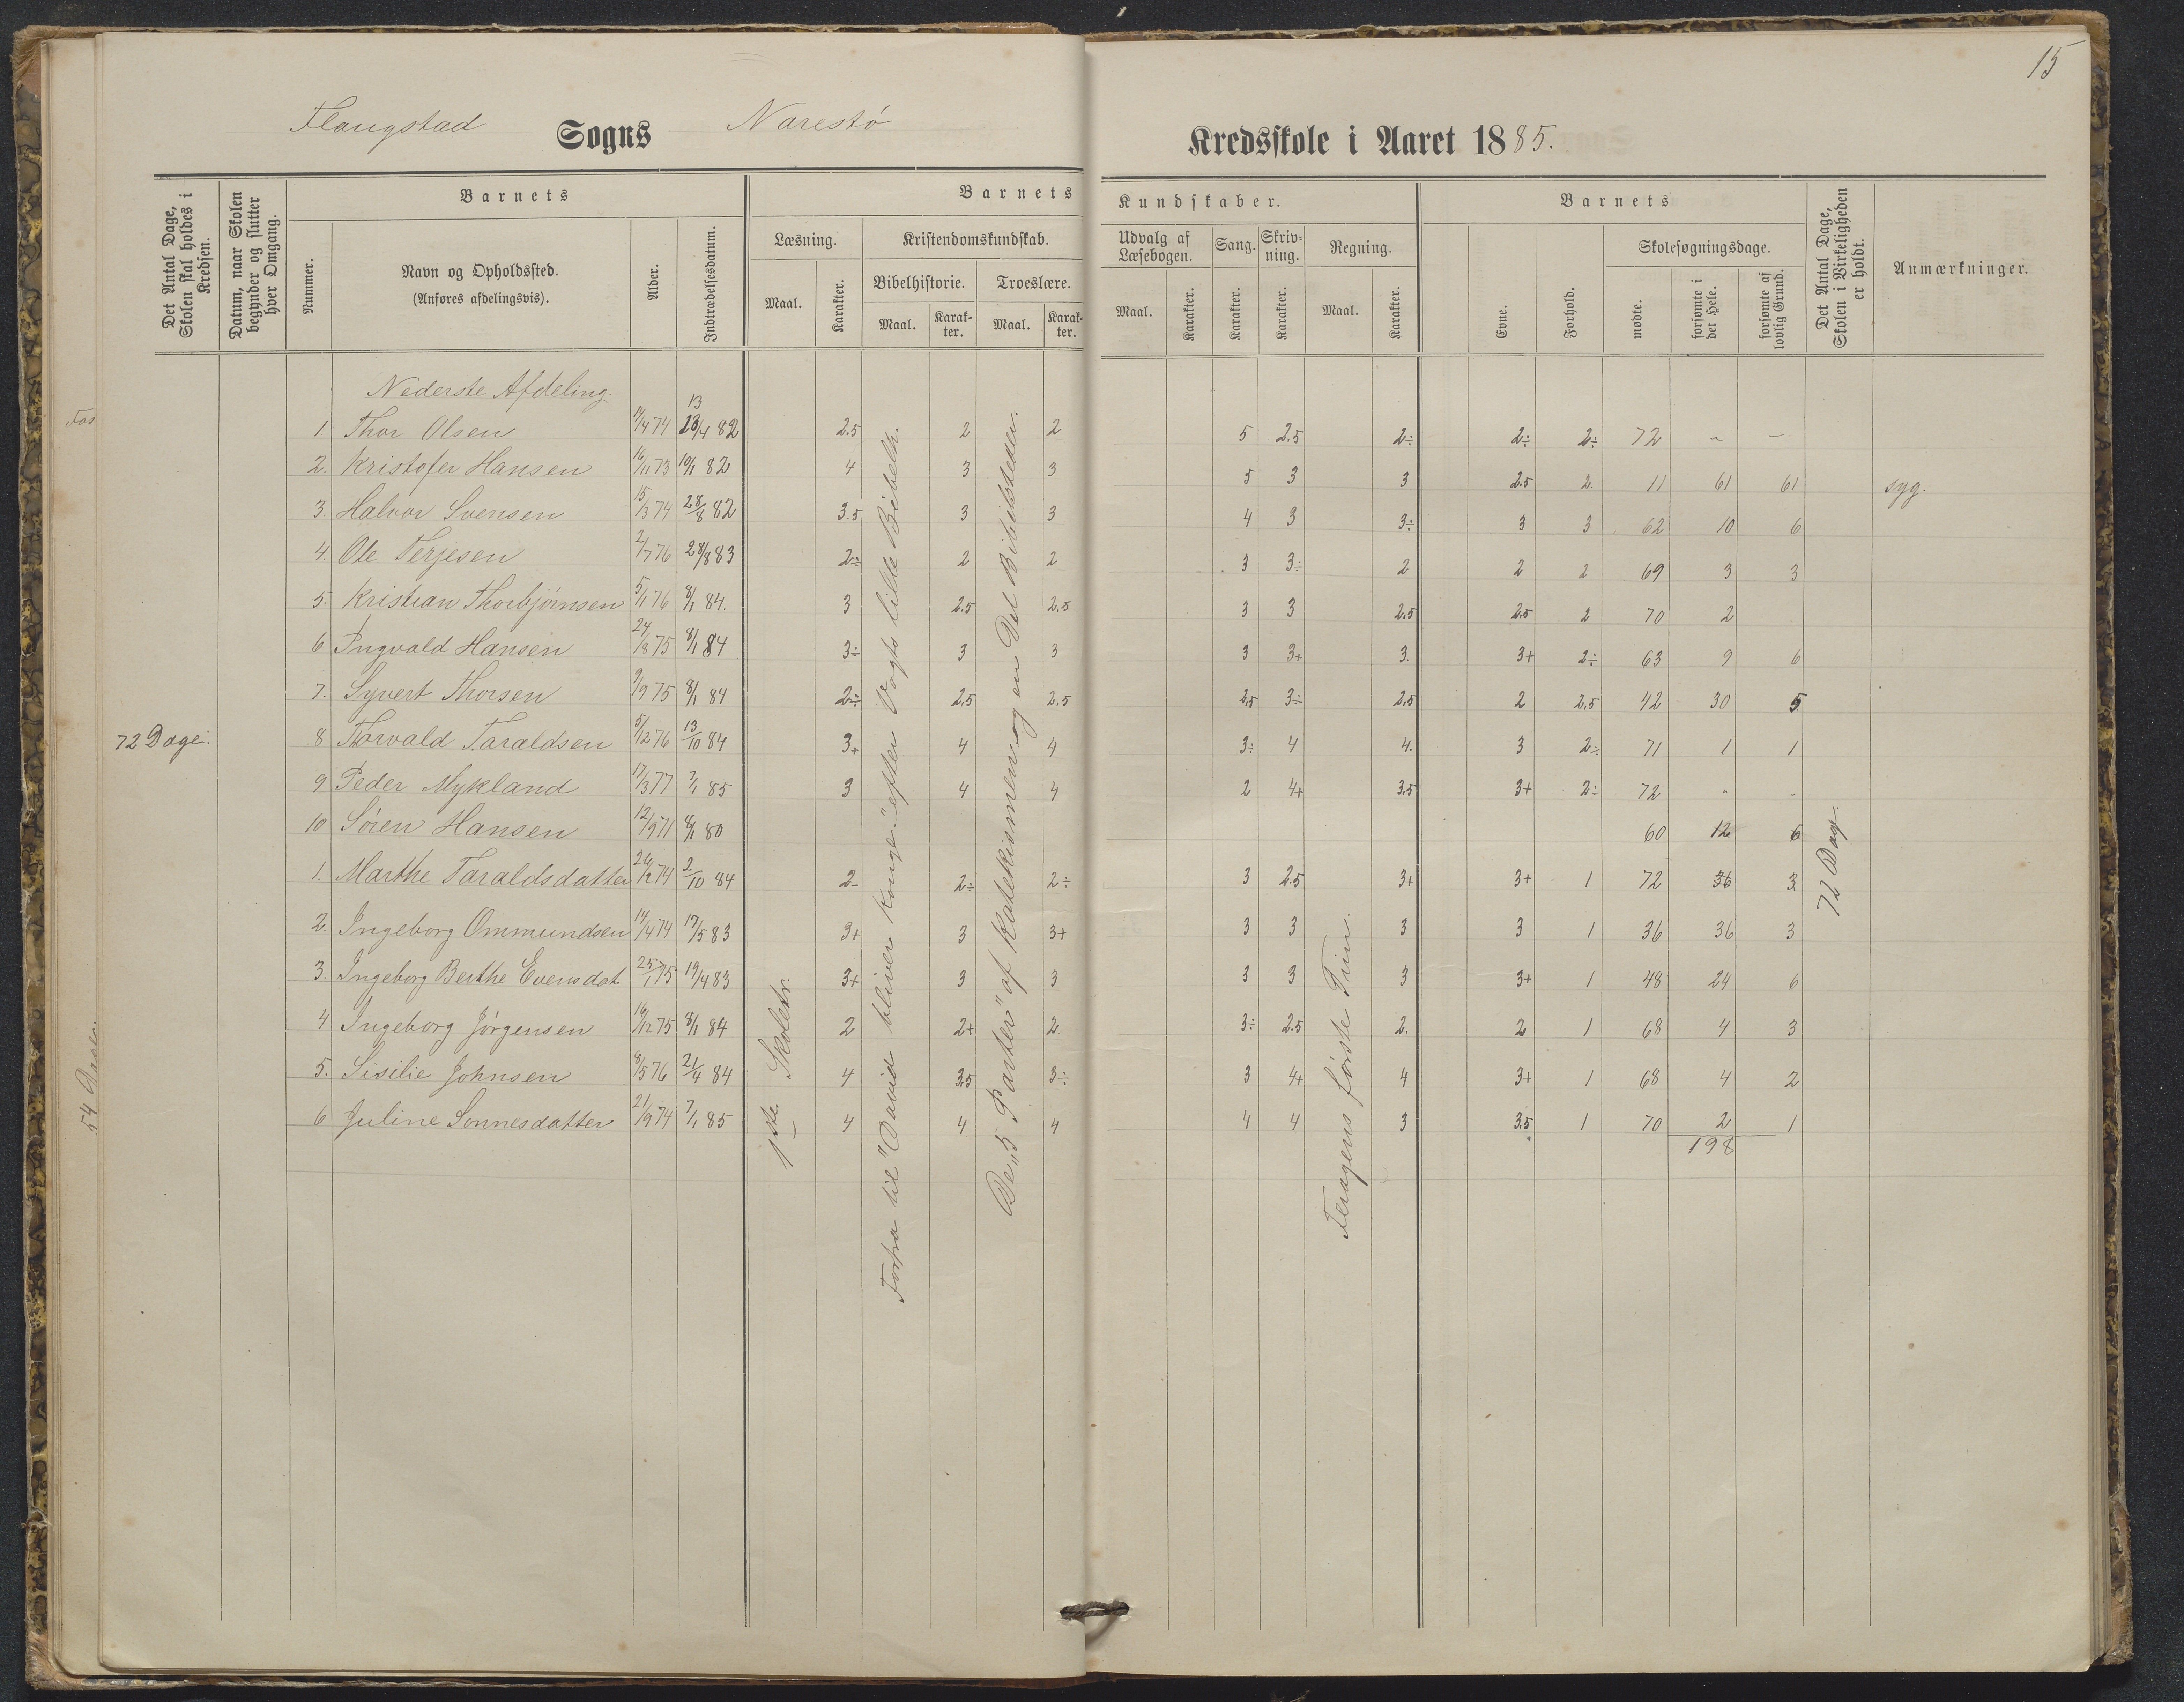 15
Flangstad Sogns Narestö Kredsskole i Aaret 1885.
Det Antal Dage, Skolen skal holdes i Kredsen.
Datum, naar Skolen begynder og slutter hver Omgang.
Barnets
Nummer.
Navn og Opholdssted.
(Anføres afdelingsvis).
Alder.
Indtrædelsesdatum.
Barnets Kundskaber.
Læsning.
Maal.
Karakter.
Kristendomskundskab.
Bibelhistorie.
Maal.
Karakter.
Troeslære.
Maal.
Karakter.
Udvalg af Læsebogen.
Maal.
Karakter.
Sang.
Karakter.
Skrivning.
Karakter.
Regning.
Maal.
Karakter.
Barnets
Evne.
Forhold.
Skolesøgningsdage.
mødte.
forsømte i det Hele.
forsømte af lovlig Grund.
Det Antal Dage, Skolen i Virkeligheden er holdt.
Anmærkninger.
Nederste Afdeling.
13
1. Thor Olsen 17/4 74 23/4 82 2.5 2 2 5 2.5 2÷ 2÷ 2÷ 72 " –
2. Kristofer Hansen 16/11 73 10/1 82 4 3 3 5 3 3 2.5 2. 11 61 61 syg.
3. Halvor Svensen 15/3 74 28/8 82 3.5 3 3 4 3 3÷ 3 3 62 10 6
4. Ole Terjesen 2/7 76 28/8 83 2÷ 2 2 3 3÷ 2 2 2 69 3 3
5. Kristian Thorbjörnsen 5/1 76 8/1 84. 3 2.5 2.5 3 3 2.5 2.5 2 70 2
6 Ingvald Hansen 24/8 75 8/1 84 3÷ 3 3 3 3+ 3. 3+ 2÷ 63 9 6
7. Syvert Thorsen 9/9 75 8/1 84 2÷ 2.5 2.5 2.5 3÷ 2.5 2 2.5 42 30 5
72 Dage.
8 Thorvald Taraldsen 5/12 76 13/10 84 3+ 4 4 3÷ 4 4. 3 2÷ 71 1 1
9 Peder Mykland 17/3 77 7/1 85 3 4 4 2 4+ 3.5 3+ 2÷ 72 " –
10 Sören Hansen 12/9 71 8/1 80 60 12 6
1. Marthe Taraldsdatter 26/12 74 2/10 84 2– 2÷ 2÷ 3 2.5 3+ 3+ 1 72 36 3
2. Ingeborg Ommundsen 14/4 74 17/5 83 3+ 3 3+ 3 3 3 3 1 36 36 3
3. Ingeborg Berthe Evensdat. 25/1 75 19/4 83 3+ 3 3 3 3 3 3+ 1 48 24 6
4 Ingeborg Jörgensen 16/12 75 8/1 84 2 2+ 2 3÷ 2.5 2. 2 1 68 4 3
5. Sisilie Johnsen 8/5 76 21/4 84 4 3.5 3÷ 3 4+ 4 3+ 1 68 4 2
6 Juline Sonnesdatter 21/9 74 7/1 85 4 4 4 4 4 3 3.5 1 70 2 1
198
1ste Skoletr.
Forfra til "David bliver Konge" efter Vogts lille Bibelh.
De "5 Parter" af Katekismen og en Del Bibelsteder.
Feragens første Trin.
72 Dage.
54 Dage.